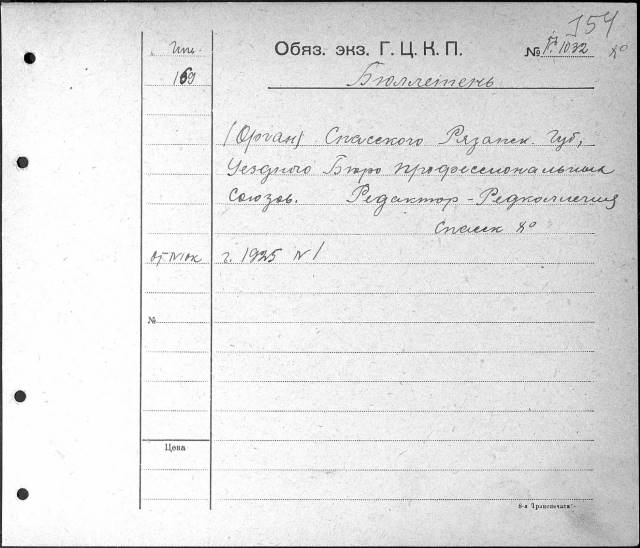 154
Обяз. экз. Г. Ц. К. П.
№ 1032
169
Бюллетень
(Орган) Спасского Рязанск. Губ,
Уездного Бюро профессиональных
союзов. Редактор - Редколлегия
Спасск
г. 1925 № 1
№
Цена